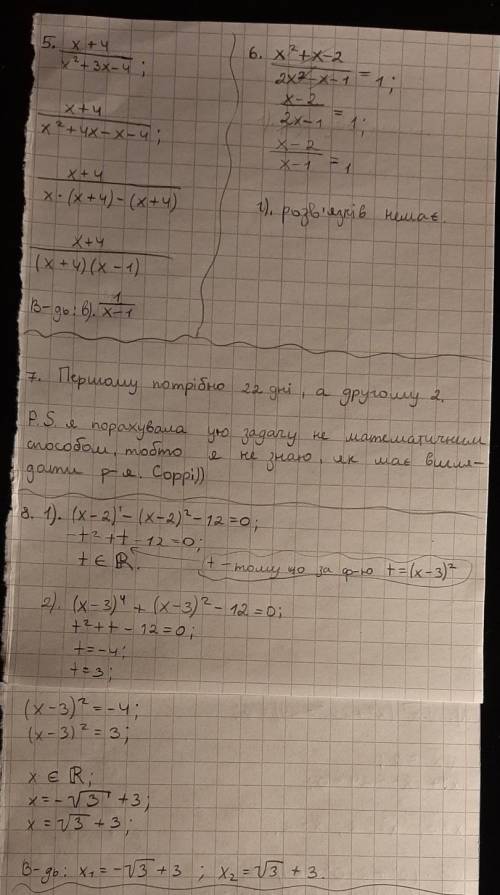 5. x+4 / x²+3x-4 ;
x+4 / x²+4x-x-4 ;
x+4 / x·(x+4)-(x+4)
x+4 / (x+4)(x-1)
В-дь: в). 1 / x-1
6. x²+x-2 / 2x²-x-1 = 1;
x-2 / 2x-1 = 1;
x-2 / x-1 = 1
г). розв'язків немає.
7. Першому потрібно 22 дні, а другому 2.
P.S. я порахувала цю задачу не математичним
способом, тобто я не знаю, як має вигля-
дати р-я. Соррі))
8. 1). (x-2)' - (x-2)² - 12 = 0;
-t² + t - 12 = 0;
t ∈ ℝ.
t - тому що за ф-ю t = (x-3)²
2). (x-3)⁴ + (x-3)² - 12 = 0;
t² + t - 12 = 0;
t = -4;
t = 3;
(x-3)² = -4;
(x-3)² = 3;
x ∈ ℝ;
x = -√3 + 3;
x = √3 + 3;
В-дь: x₁ = -√3 + 3 ; x₂ = √3 + 3.